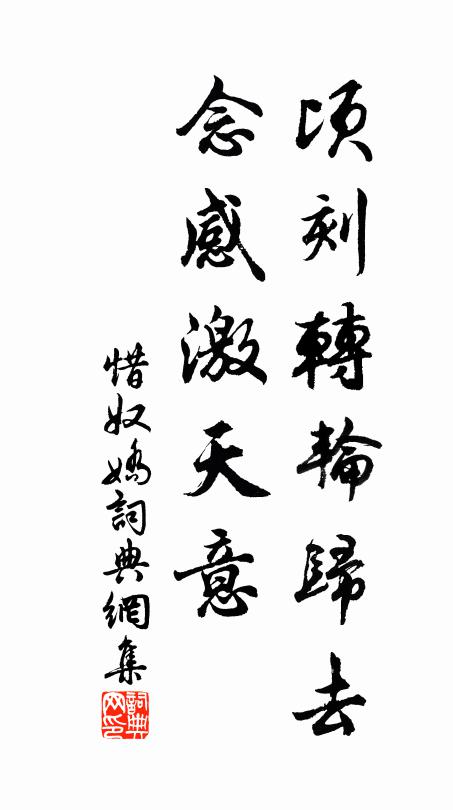 頃刻轉輪歸去
念感激天意
惜奴嬌詞典網集
詞典网印